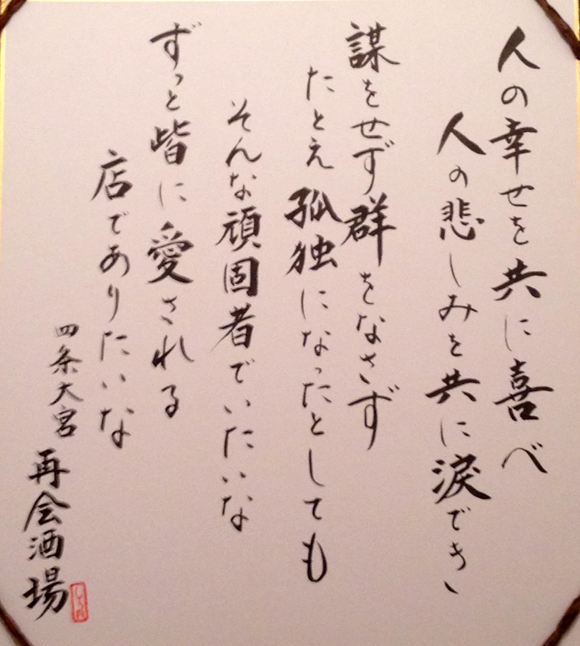 人の幸せを共に喜べ
人の悲しみを共に涙でき
謀をせず群をなさず
たとえ孤独になったとしても
そんな頑固者でいたいな
ずっと皆に愛される
店でありたいな
四条大宮
再会酒場